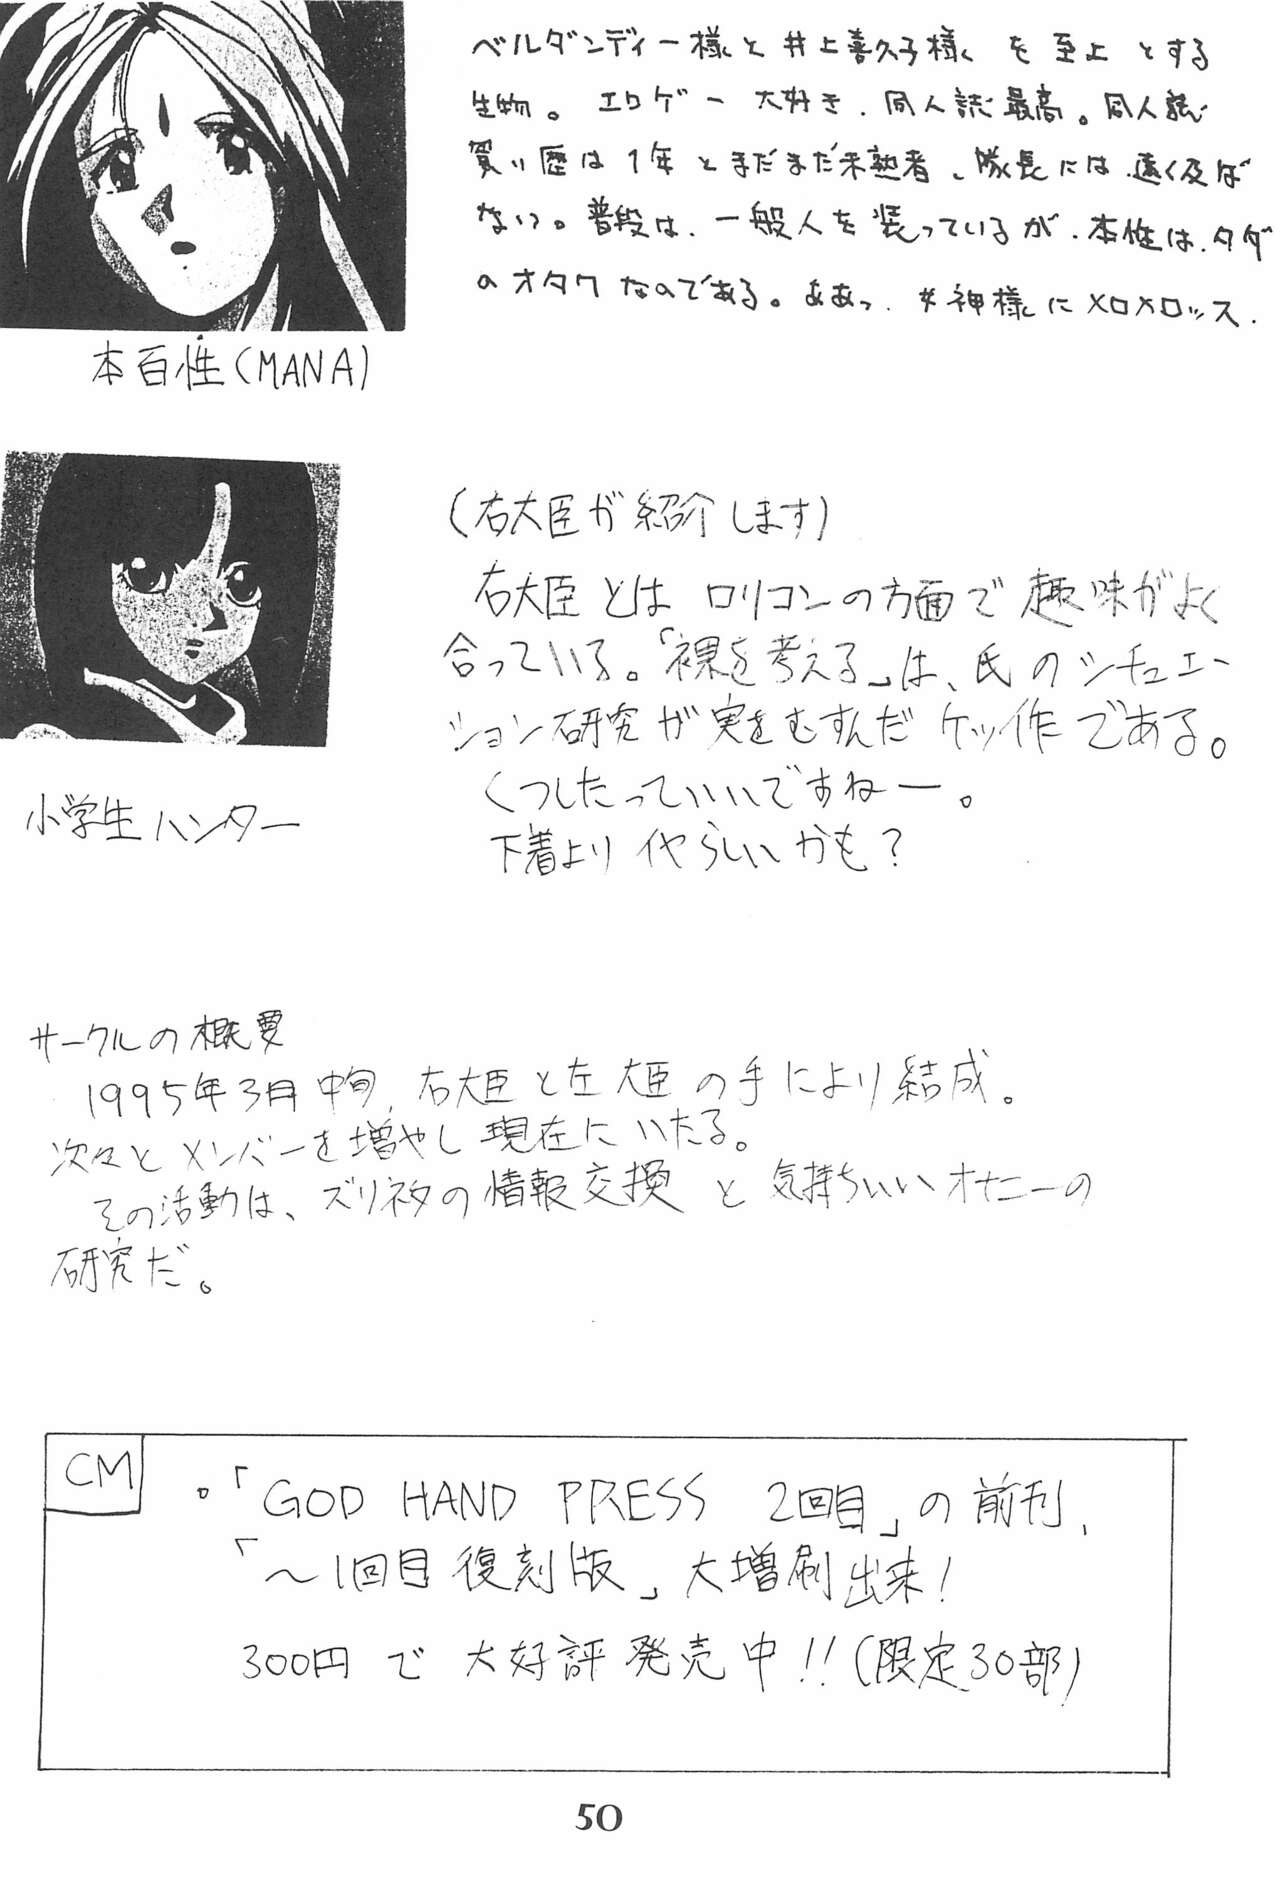 ベルダンディー様と井上喜久子様を至上とする
生物。エロゲー大好き、同人誌最高。同人誌
買い歴は1年とまだまだ未熟者、隊長には遠く及ば
ない。普段は、一般人を装っているが、本性は、タダ
のオタクなのである。ああっ、女神様にメロメロッス.
本百性(MANA)
(右大臣が紹介します)
右大臣とはロリコンの方面で趣味がよく
合っている。「裸を考える」は、氏のシチュエー
ション研究が実をむすんだケッ作である。
くつしたっていいですねー。
下着よりイヤらしいかも?
小学生ハンター
サークルの概要
1995年3月中旬、右大臣と左大臣の手により結成。
次々とメンバーを増やし現在にいたる。
その活動は、ズリネタの情報交換と気持ちいいオナニーの
研究だ。
CM
。「GOD HAND PRESS 2回目」の前刊、
「～1回目復刻版」大増刷出来!
300円で大好評発売中!!(限定30部)
50